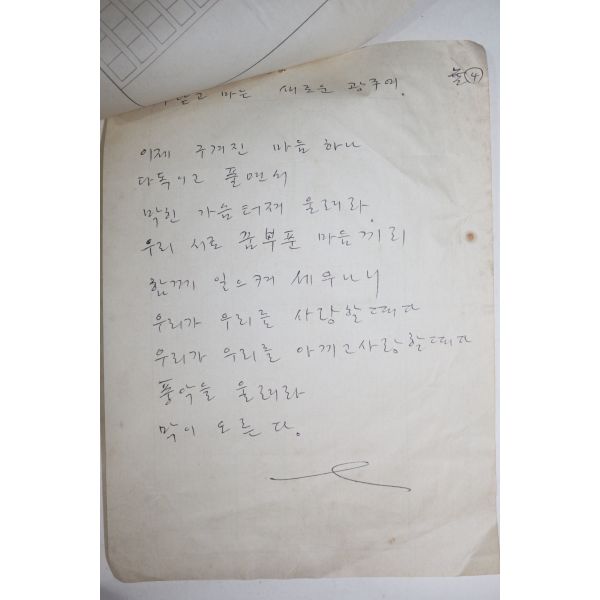 놀 ④
낳고 마는 새로운 광주여.
이제 구겨진 마음 하나
다독이고 풀면서
막힌 가슴 터져 울려라.
우리 서로 꿈부푼 마음끼리
함께 일으켜 세우나니
우리가 우리를 사랑할 때다
우리가 우리를 아끼고 사랑할 때다
풍악을 울려라
막이 오른다.